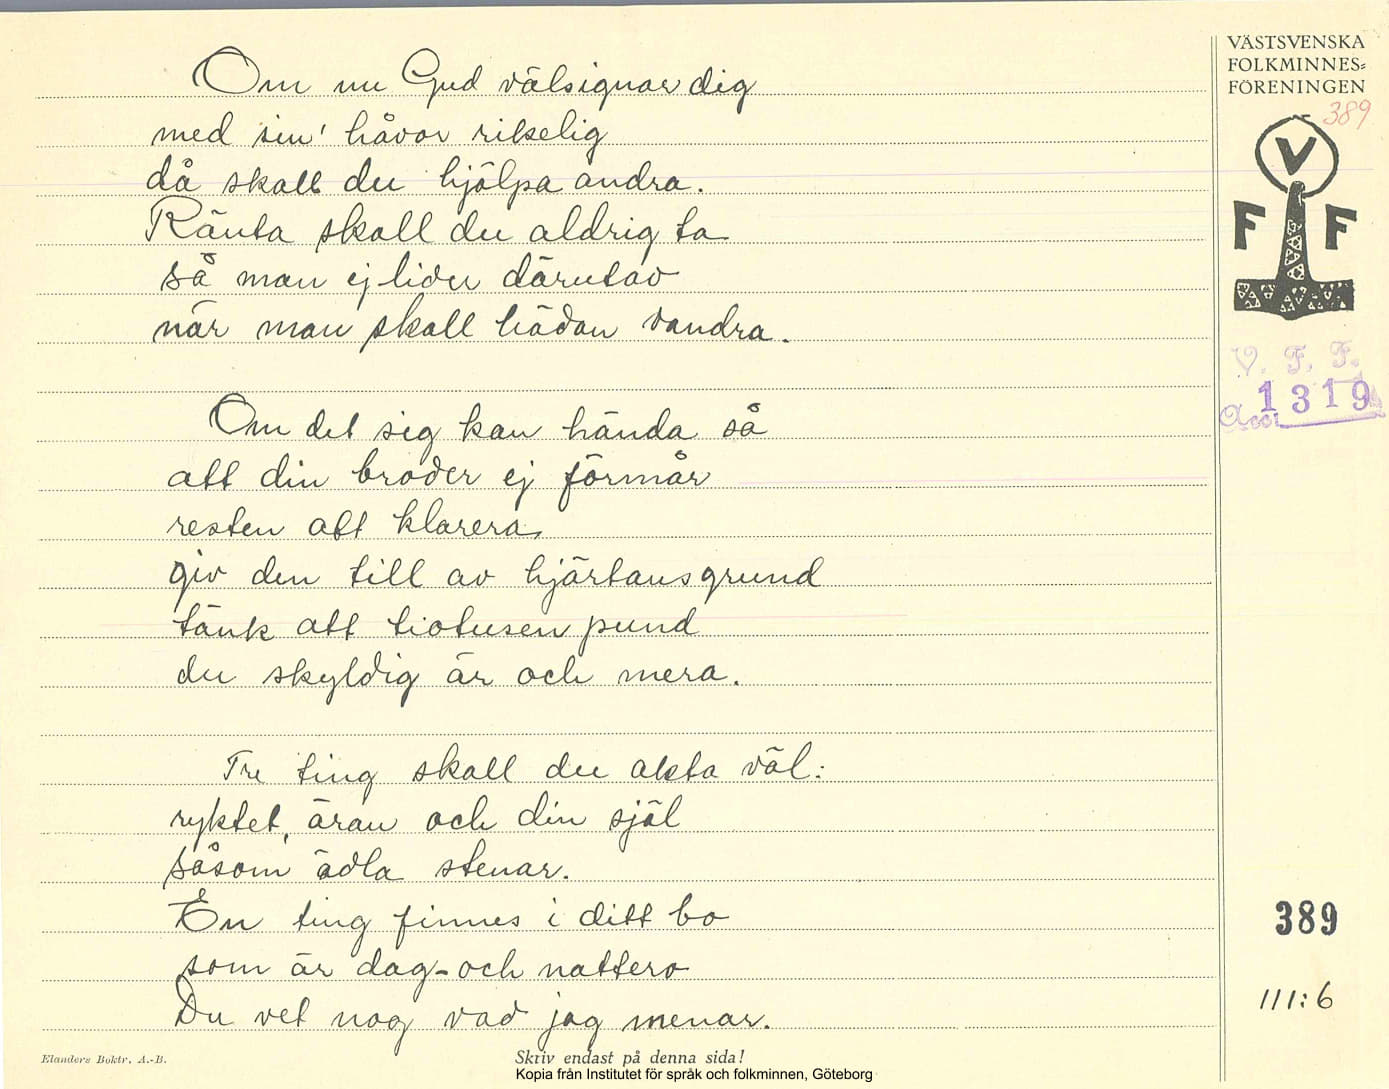 VÄSTSVENSKA
FOLKMINNES=
FÖRENINGEN
389
V
F F
V. F. F.
Acc. 1319
Om nu Gud välsignar dig
med sin' håvor rikelig
då skall du hjälpa andra.
Ränta skall du aldrig ta
så man ej lider därutav
när man skall hädan vandra.
Om det sig kan hända så
att din broder ej förmår
resten att klarera,
giv den till av hjärtansgrund
tänk att tiotusen pund
du skyldig är och mera.
Tre ting skall du akta väl:
ryktet, äran och din själ
såsom ädla stenar.
En ting finnes i ditt bo
som är dag- och nattero
Du vet nog vad jag menar.
389
111:6
Elanders Boktr. A.-B.
Skriv endast på denna sida!
Kopia från Institutet för språk och folkminnen, Göteborg